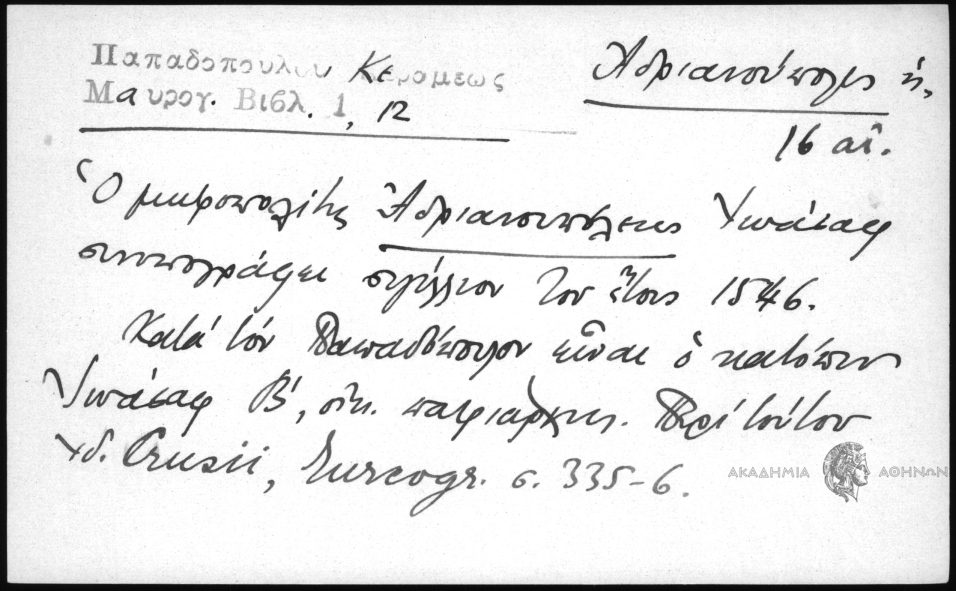 Παπαδοπούλου Κεραμέως
Μαυρογ. Βιβλ. 1, 12
Ἀδριανούπολις ἡ,
16 αἰ.
Ὁ μητροπολίτης Ἀδριανουπόλεως Ἰωάσαφ
συνυπογράφει σιγίλλιον τοῦ ἔτους 1546.
Κατά τόν Παπαδόπουλον εἶναι ὁ κατόπιν
Ἰωάσαφ Β', οἰκ. πατριάρχης. Περί τούτου
Crusii, Turcogr. σ. 335-6.
ΑΚΑΔΗΜΙΑ ΑΘΗΝΩΝ